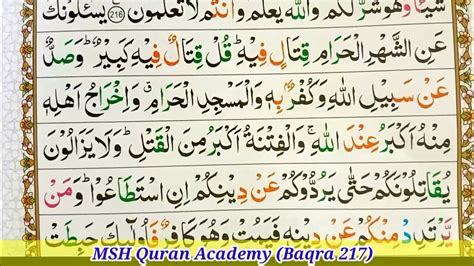 شَيْـًٔا وَّهُوَ شَرٌّ لَّكُمْ ؕ وَاللّٰهُ يَعْلَمُ وَاَنْتُمْ لَا تَعْلَمُوْنَ ﴿216﴾ يَسْـَٔلُوْنَكَ
عَنِ الشَّهْرِ الْحَرَامِ قِتَالٍ فِيْهِ ؕ قُلْ قِتَالٌ فِيْهِ كَبِيْرٌ ؕ وَصَدٌّ
عَنْ سَبِيْلِ اللّٰهِ وَكُفْرٌۢ بِهٖ وَالْمَسْجِدِ الْحَرَامِ ۗ وَاِخْرَاجُ اَهْلِهٖ
مِنْهُ اَكْبَرُ عِنْدَ اللّٰهِ ۚ وَالْفِتْنَةُ اَكْبَرُ مِنَ الْقَتْلِ ؕ وَلَا يَزَالُوْنَ
يُقَاتِلُوْنَكُمْ حَتّٰى يَرُدُّوْكُمْ عَنْ دِيْنِكُمْ اِنِ اسْتَطَاعُوْا ؕ وَمَنْ
يَّرْتَدِدْ مِنْكُمْ عَنْ دِيْنِهٖ فَيَمُتْ وَهُوَ كَافِرٌ فَاُولٰٓئِكَ حَبِطَتْ
MSH Quran Academy (Baqra 217)